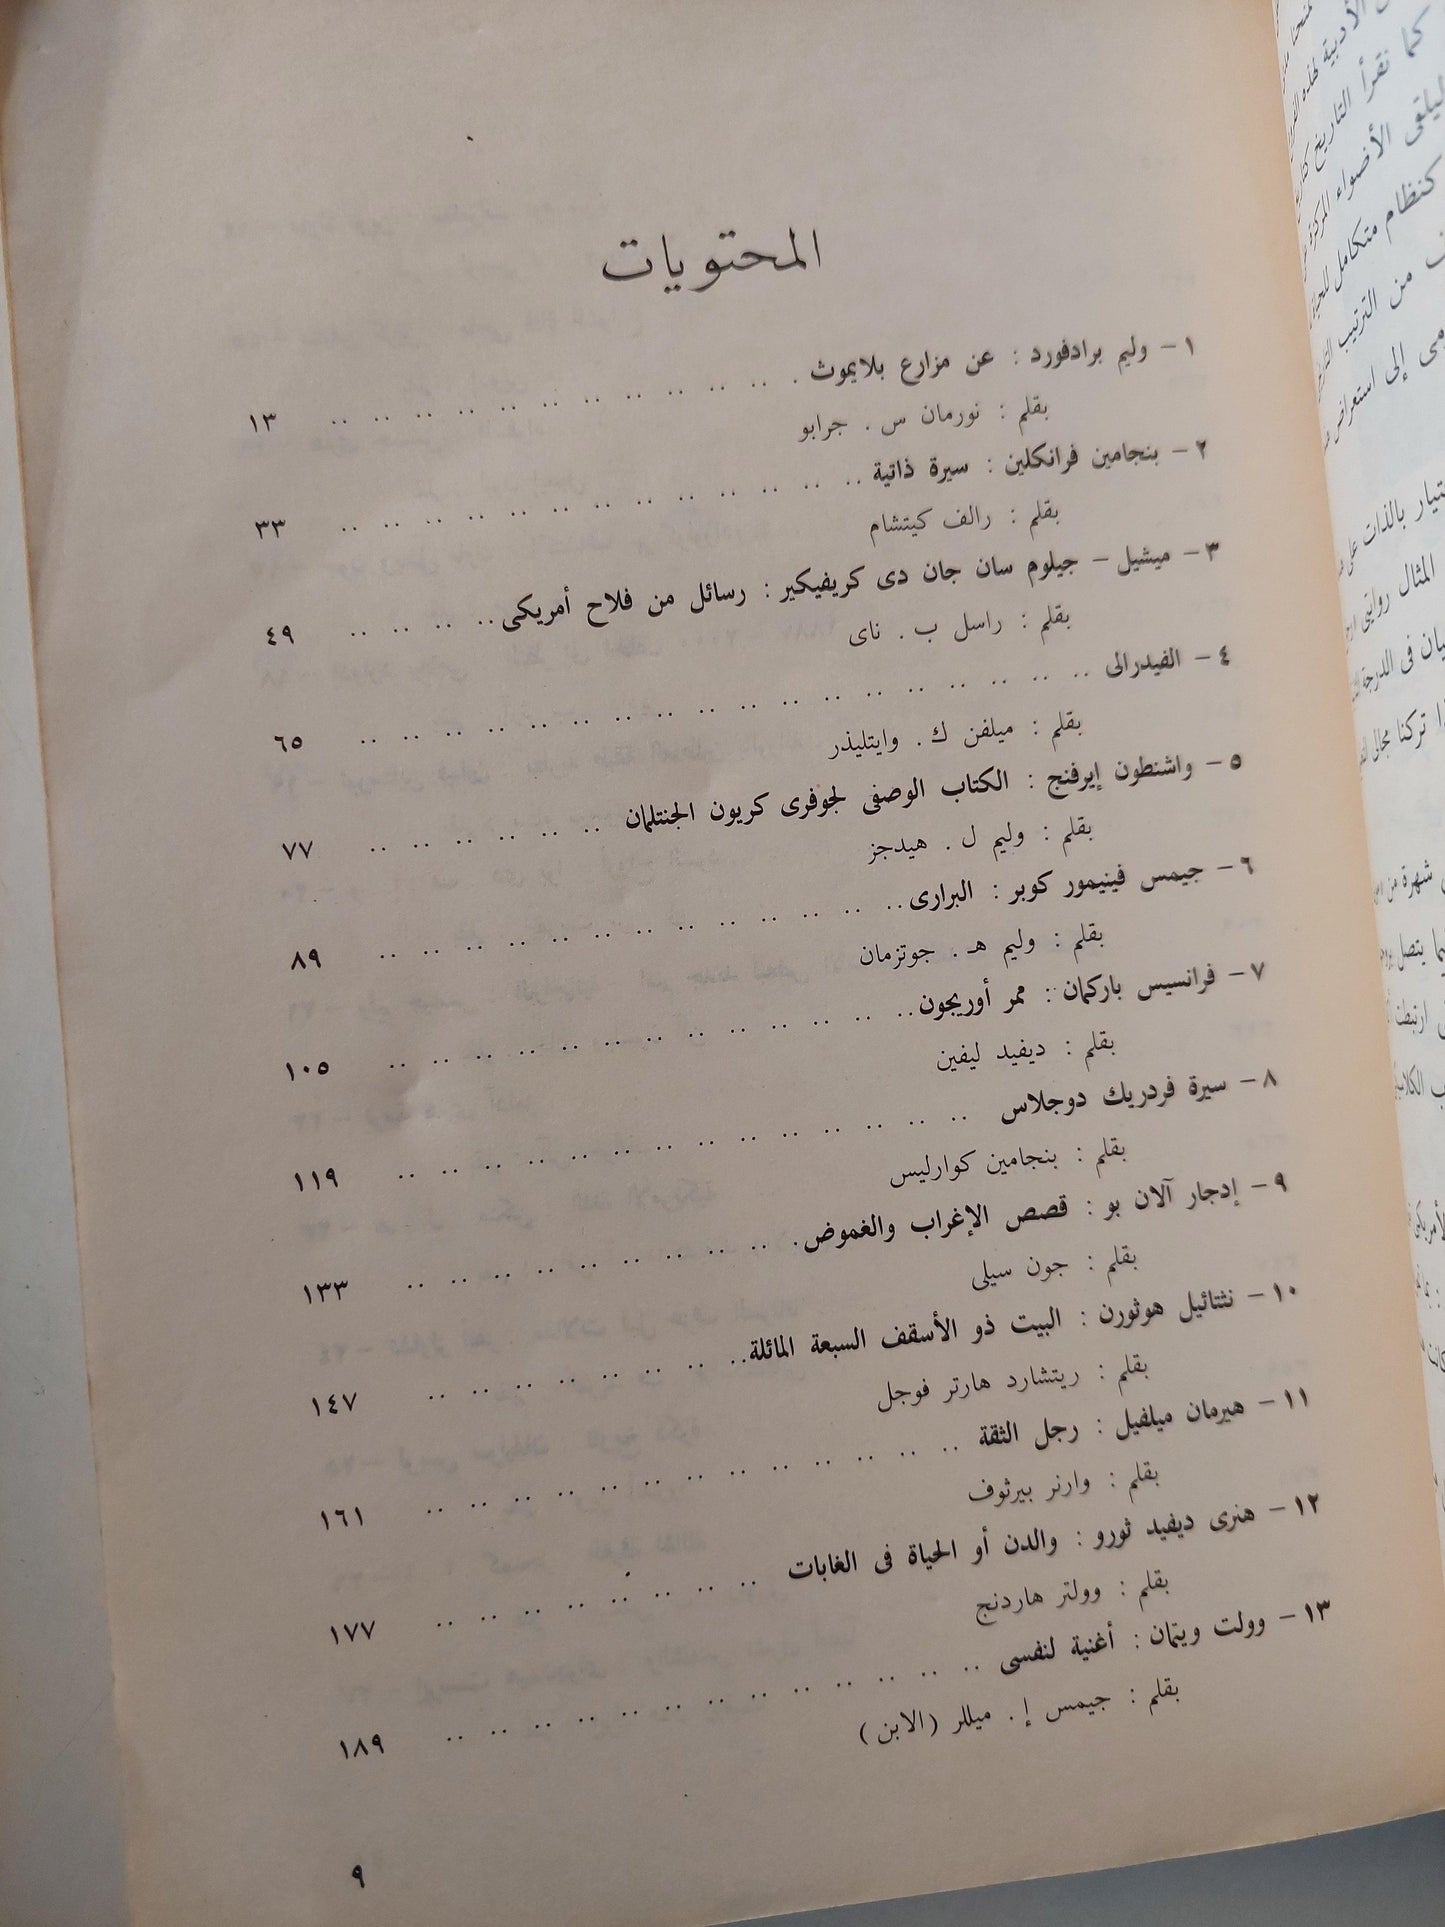 المحتويات
١ – وليم برادفورد : عن مزارع بلايموث . .. .. .. .. .. .. .. .. .. .. .. ١٣
بقلم : نورمان س . جرابو
٢ – بنجامين فرانكلين : سيرة ذاتية .. .. .. .. .. .. .. .. .. .. .. .. .. ٣٣
بقلم : رالف كيتشام
٣ – ميشيل – جيلوم سان جان دى كريفيكير : رسائل من فلاح أمريكى .. .. .. .. ٤٩
بقلم : راسل ب . ناى
٤ – الفيدرالى .. .. .. .. .. .. .. .. .. .. .. .. .. .. .. .. .. .. ٦٥
بقلم : ميلفن ك . وايتليذر
٥ – واشنطون إيرفنج : الكتاب الوصفى لجوفرى كريون الجنتلمان .. .. .. .. .. .. ٧٧
بقلم : وليم ل . هيدجز
٦ – جيمس فينيمور كوبر : البرارى .. .. .. .. .. .. .. .. .. .. .. .. .. ٨٩
بقلم : وليم هـ . جوتزمان
٧ – فرانسيس باركمان : ممر أوريجون .. .. .. .. .. .. .. .. .. .. .. .. .. ١٠٥
بقلم : ديفيد ليفين
٨ – سيرة فردريك دوجلاس .. .. .. .. .. .. .. .. .. .. .. .. .. .. ١١٩
بقلم : بنجامين كوارليس
٩ – إدجار آلان بو : قصص الإغراب والغموض . .. .. .. .. .. .. .. .. .. ١٣٣
بقلم : جون سيلى
١٠ – نثتائيل هوثورن : البيت ذو الأسقف السبعة المائلة .. .. .. .. .. .. .. .. ١٤٧
بقلم : ريتشارد هارتر فوجل
١١ – هيرمان ميلفيل : رجل الثقة .. .. .. .. .. .. .. .. .. .. .. .. .. ١٦١
بقلم : وارنر بيرثوف
١٢ – هنرى ديفيد ثورو : والدن أو الحياة فى الغابات .. .. .. .. .. .. .. .. ١٧٧
بقلم : وولتر هاردنج
١٣ – وولت ويتمان : أغنية لنفسى .. .. .. .. .. .. .. .. .. .. .. .. .. ١٨٩
بقلم : جيمس إ . ميللر (الابن)
٩
كما نقرأ التاريخ
الأضواء
كنظام متكامل
من الترتيب
إلى استعراض
بالذات على
المثال روايتى
فى الدرجة
تركنا مجالى
شهرة من
يتصل
ارتبطت